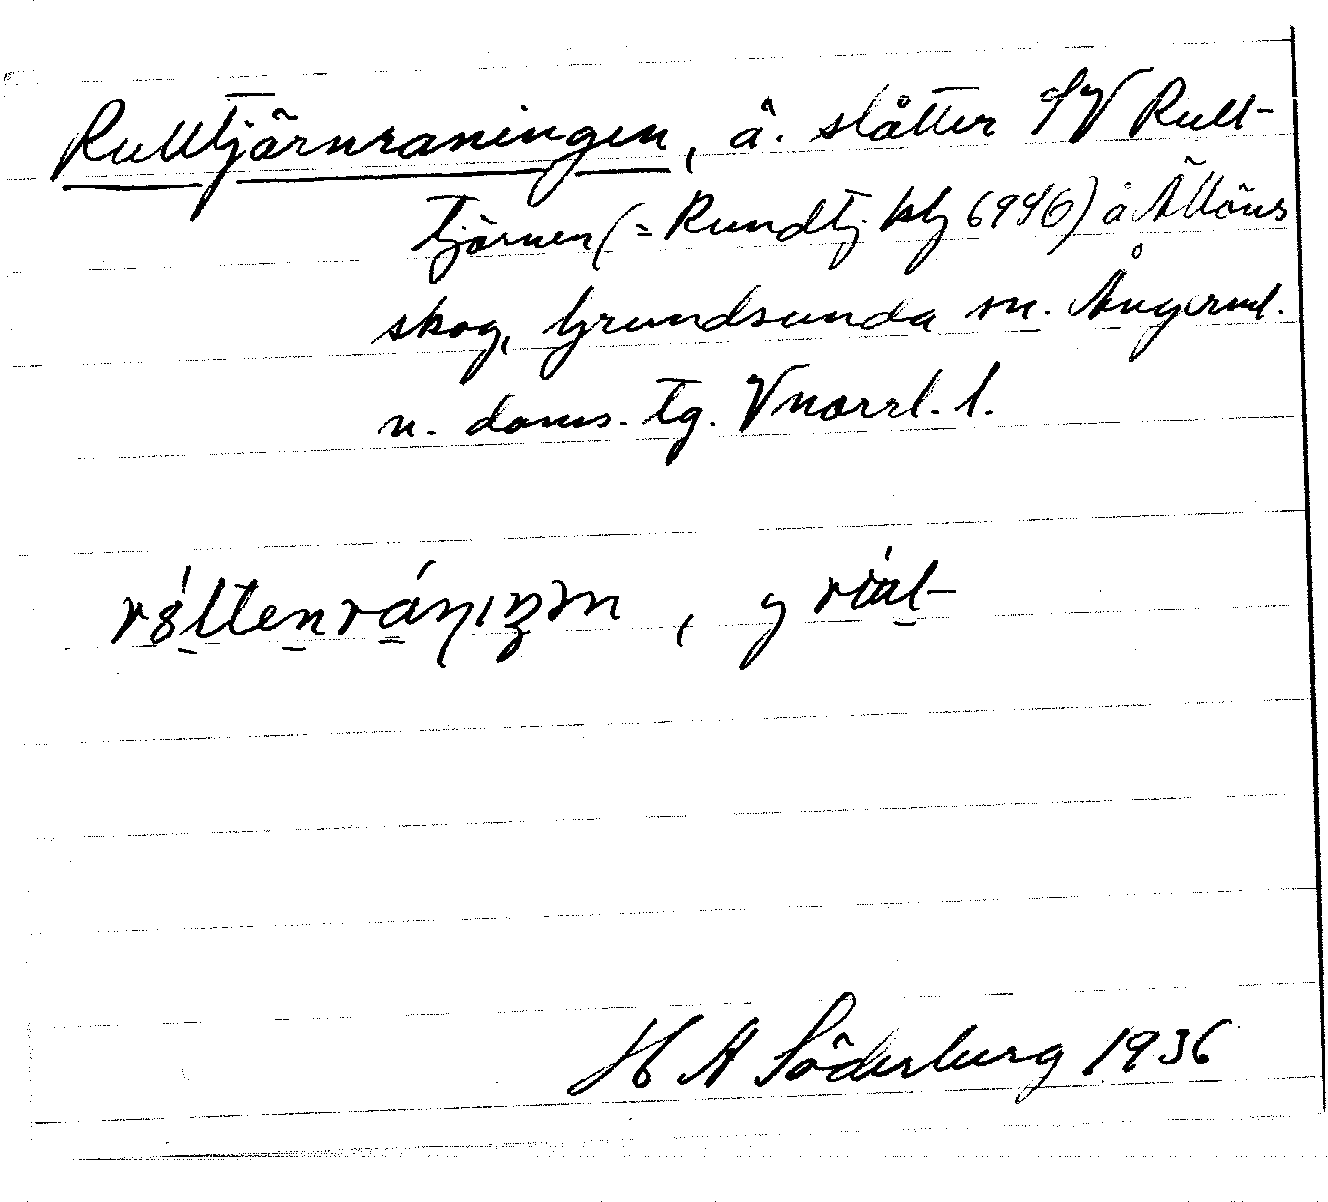 Rulltjärnraningen, å. slåtter SV Rull-
tjärnen (= Rundtj kbl 6946) å Ällöns
skog, Grundsunda sn. Ångerml.
n. doms. tg. Vnorrl. l.
H A Söderberg 1936